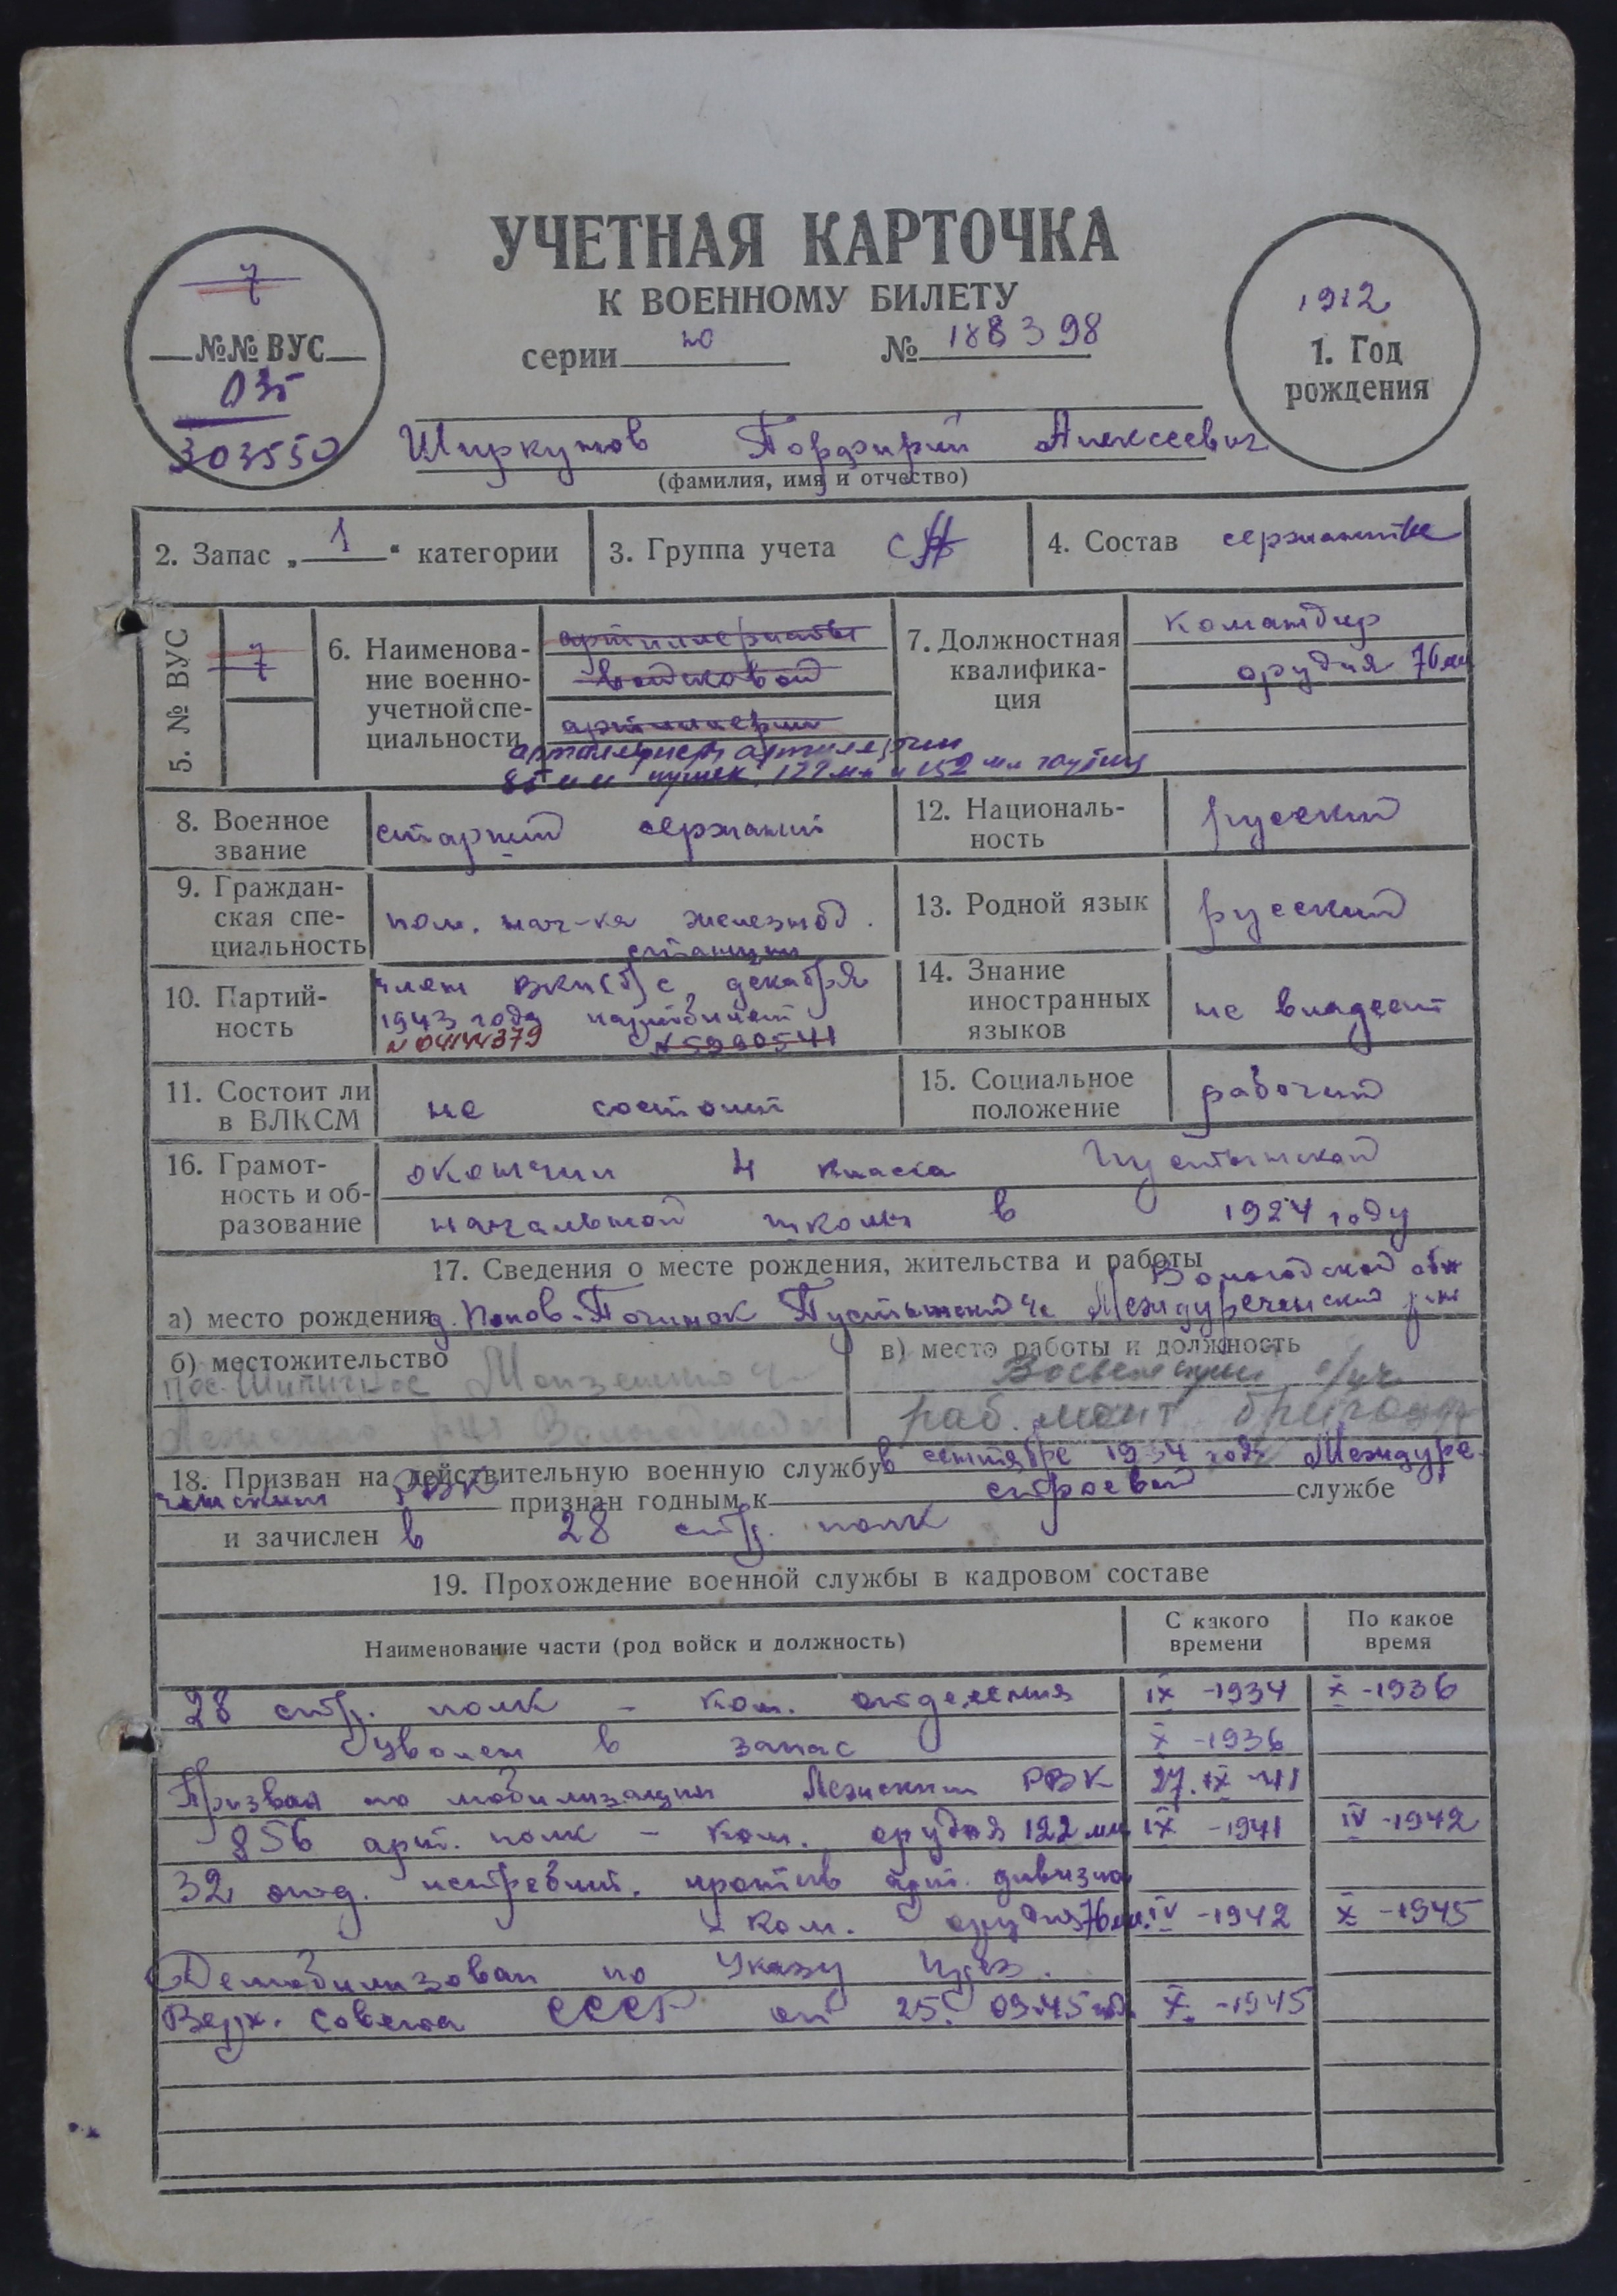 УЧЕТНАЯ КАРТОЧКА
К ВОЕННОМУ БИЛЕТУ
серии ю № 188398
7
№№ ВУС
035
303550
1912
1. Год
рождения
Ширкунов Порфирий Алексеевич
(фамилия, имя и отчество)
2. Запас „1“ категории
3. Группа учета СА
4. Состав сержантск
5. № ВУС
7
6. Наименова-
ние военно-
учетной спе-
циальности
артиллеристы
войсковой
артиллерии
артиллеристы артиллерии
85 мм пушек, 122 мм и 152 мм гаубиц
7. Должностная
квалифика-
ция
командир
орудия 76 мм
8. Военное
звание
старший сержант
12. Националь-
ность
русский
9. Граждан-
ская спе-
циальность
пом. нач-ка железнод.
станции
13. Родной язык
русский
10. Партий-
ность
член ВКП(б) с декабря
1943 года партбилет
№ 04144379 № 5990541
14. Знание
иностранных
языков
не владеет
11. Состоит ли
в ВЛКСМ
не состоит
15. Социальное
положение
рабочий
16. Грамот-
ность и об-
разование
окончил 4 класса Пустынской
начальной школы в 1924 году
17. Сведения о месте рождения, жительства и работы
Вологодской обл
а) место рождения д. Попов-Починок Пустынский с/с Междуреченский р-н
б) местожительство
пос. Шипичное Монзенского
Вологодской
в) место работы и должность
раб. монт бригады
18. Призван на действительную военную службу в сентябре 1934 года Междуре-
ченским РВК признан годным к строевой службе
и зачислен в 28 стр. полк
19. Прохождение военной службы в кадровом составе
Наименование части (род войск и должность)
С какого
времени
По какое
время
28 стр. полк - ком. отделения IX -1934 X -1936
Уволен в запас X -1936
Призван по мобилизации Лежским РВК 27.IX-41
856 арт. полк - ком. орудия 122 мм IX -1941 IV -1942
32 отд. истребит. против арт. дивизион
- ком. орудия 76 мм. IV -1942 X -1945
Демобилизован по Указу През.
Верх. Совета СССР от 25.09.45 год. X -1945